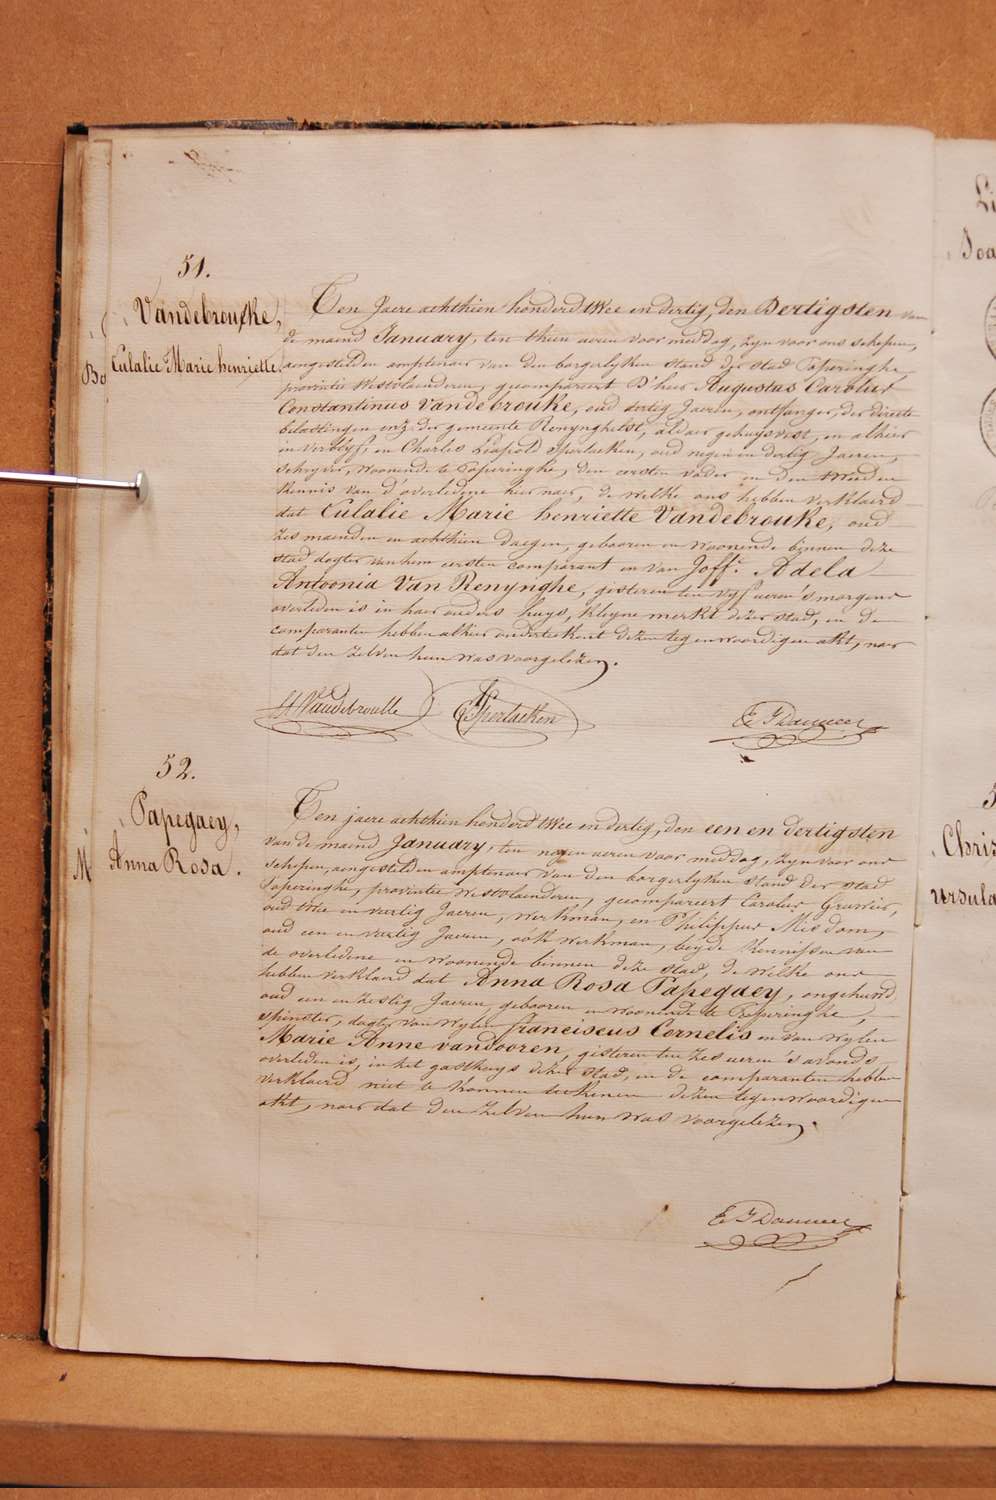 51.
Vandebrouke,
Eulalie Marie henriette.
Ten Jaere achthien honderd twee en dertig, den Dertigsten van
de maend January, ten thien ueren voor middag, zyn voor ons schepen,
aengestelden amptenaer van den borgerlyken stand der stad Poperinghe
provintie Westvlaenderen, gecompareert D'heer Augustus Carolus
Constantinus Vandebrouke, oud dertig Jaeren, ontfanger der directe
belastingen enz. der gemeente Renynghelst, aldaer gehuysvest, en alhier
in verblyf, en Charles Leopold Sperlaeken, oud negen en dertig Jaeren,
schryver, woonende te Poperinghe, den eersten vader en den tweeden
kennis van d'overledene hier naer, de welke ons hebben verklaerd
dat Eulalie Marie henriette Vandebrouke, oud
zes maenden en achthien daegen, gebooren en woonende binnen deze
stad dogter van hem eersten comparant en van Joffe. Adela
Antoonia Van Renynghe, gisteren ten vyf ueren s'morgens
overleden is in haer ouders huys, kleyne merkt dezer stad, en de
comparanten hebben alhier onderteekent dezen tegenwoordigen akt, naer
dat den zelven hun was voorgelezen.
Vandebroukke
Sperlaeken
52.
Papegaey,
Anna Rosa.
Ten jaere achthien honderd twee en dertig, den een en dertigsten
van de maend January, ten negen ueren voor middag, zyn voor ons
schepen, aengestelden amptenaer van den borgerlyken stand der stad
Poperinghe, provintie Westvlaenderen, gecompareert Carolus Gruwier,
oud twee en veertig Jaeren, werkman, en Philippus Misdom,
oud een en veertig Jaeren, ook werkman, beyde kennissen van
de overledene en woonende binnen deze stad, de welke ons
hebben verklaerd dat Anna Rosa Papegaey, ongehuwd,
oud een en zestig Jaeren, gebooren en woonende te Poperinghe,
spinster, dogter van wylen franciscus Cornelis en van wylen
Marie Anne vandooren, gisteren ten zes ueren 's avonds
overleden is, in het gasthuys dezer stad, en de comparanten hebben
verklaerd niet te konnen teekenen dezen tegenwoordigen
akt, naer dat den zelven hun was voorgelezen.
Bo
M
Li
Joa
5
Chris
ursula